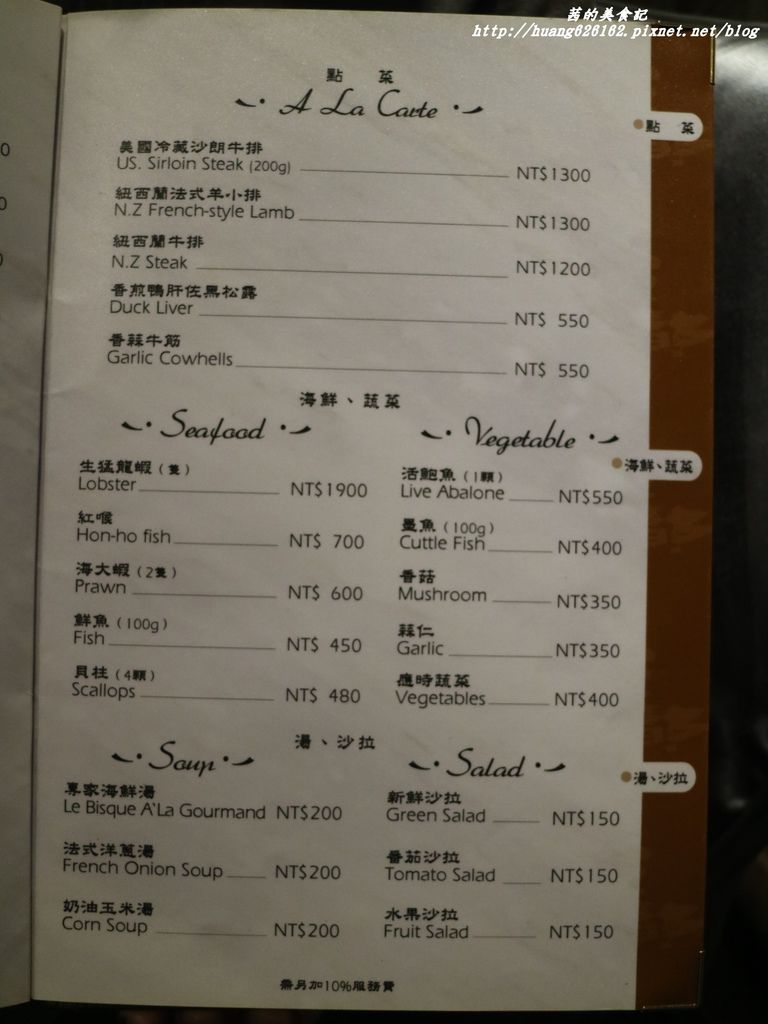 茜的美食記
http://huang626162.pixnet.net/blog
點 菜
A La Carte
點 菜
美國冷藏沙朗牛排
US. Sirloin Steak (200g) NT$1300
紐西蘭法式羊小排
N.Z French-style Lamb NT$1300
紐西蘭牛排
N.Z Steak NT$1200
香煎鴨肝佐黑松露
Duck Liver NT$ 550
香蒜牛筋
Garlic Cowhells NT$ 550
海鮮、蔬菜
Seafood
生猛龍蝦(隻)
Lobster NT$1900
紅喉
Hon-ho fish NT$ 700
海大蝦(2隻)
Prawn NT$ 600
鮮魚(100g)
Fish NT$ 450
貝柱(4顆)
Scallops NT$ 480
Vegetable
海鮮、蔬菜
活鮑魚(1顆)
Live Abalone NT$550
墨魚(100g)
Cuttle Fish NT$400
香菇
Mushroom NT$350
蒜仁
Garlic NT$350
應時蔬菜
Vegetables NT$400
湯、沙拉
Soup
專家海鮮湯
Le Bisque A'La Gourmand NT$200
法式洋蔥湯
French Onion Soup NT$200
奶油玉米湯
Corn Soup NT$200
Salad
湯、沙拉
新鮮沙拉
Green Salad NT$150
番茄沙拉
Tomato Salad NT$150
水果沙拉
Fruit Salad NT$150
需另加10%服務費